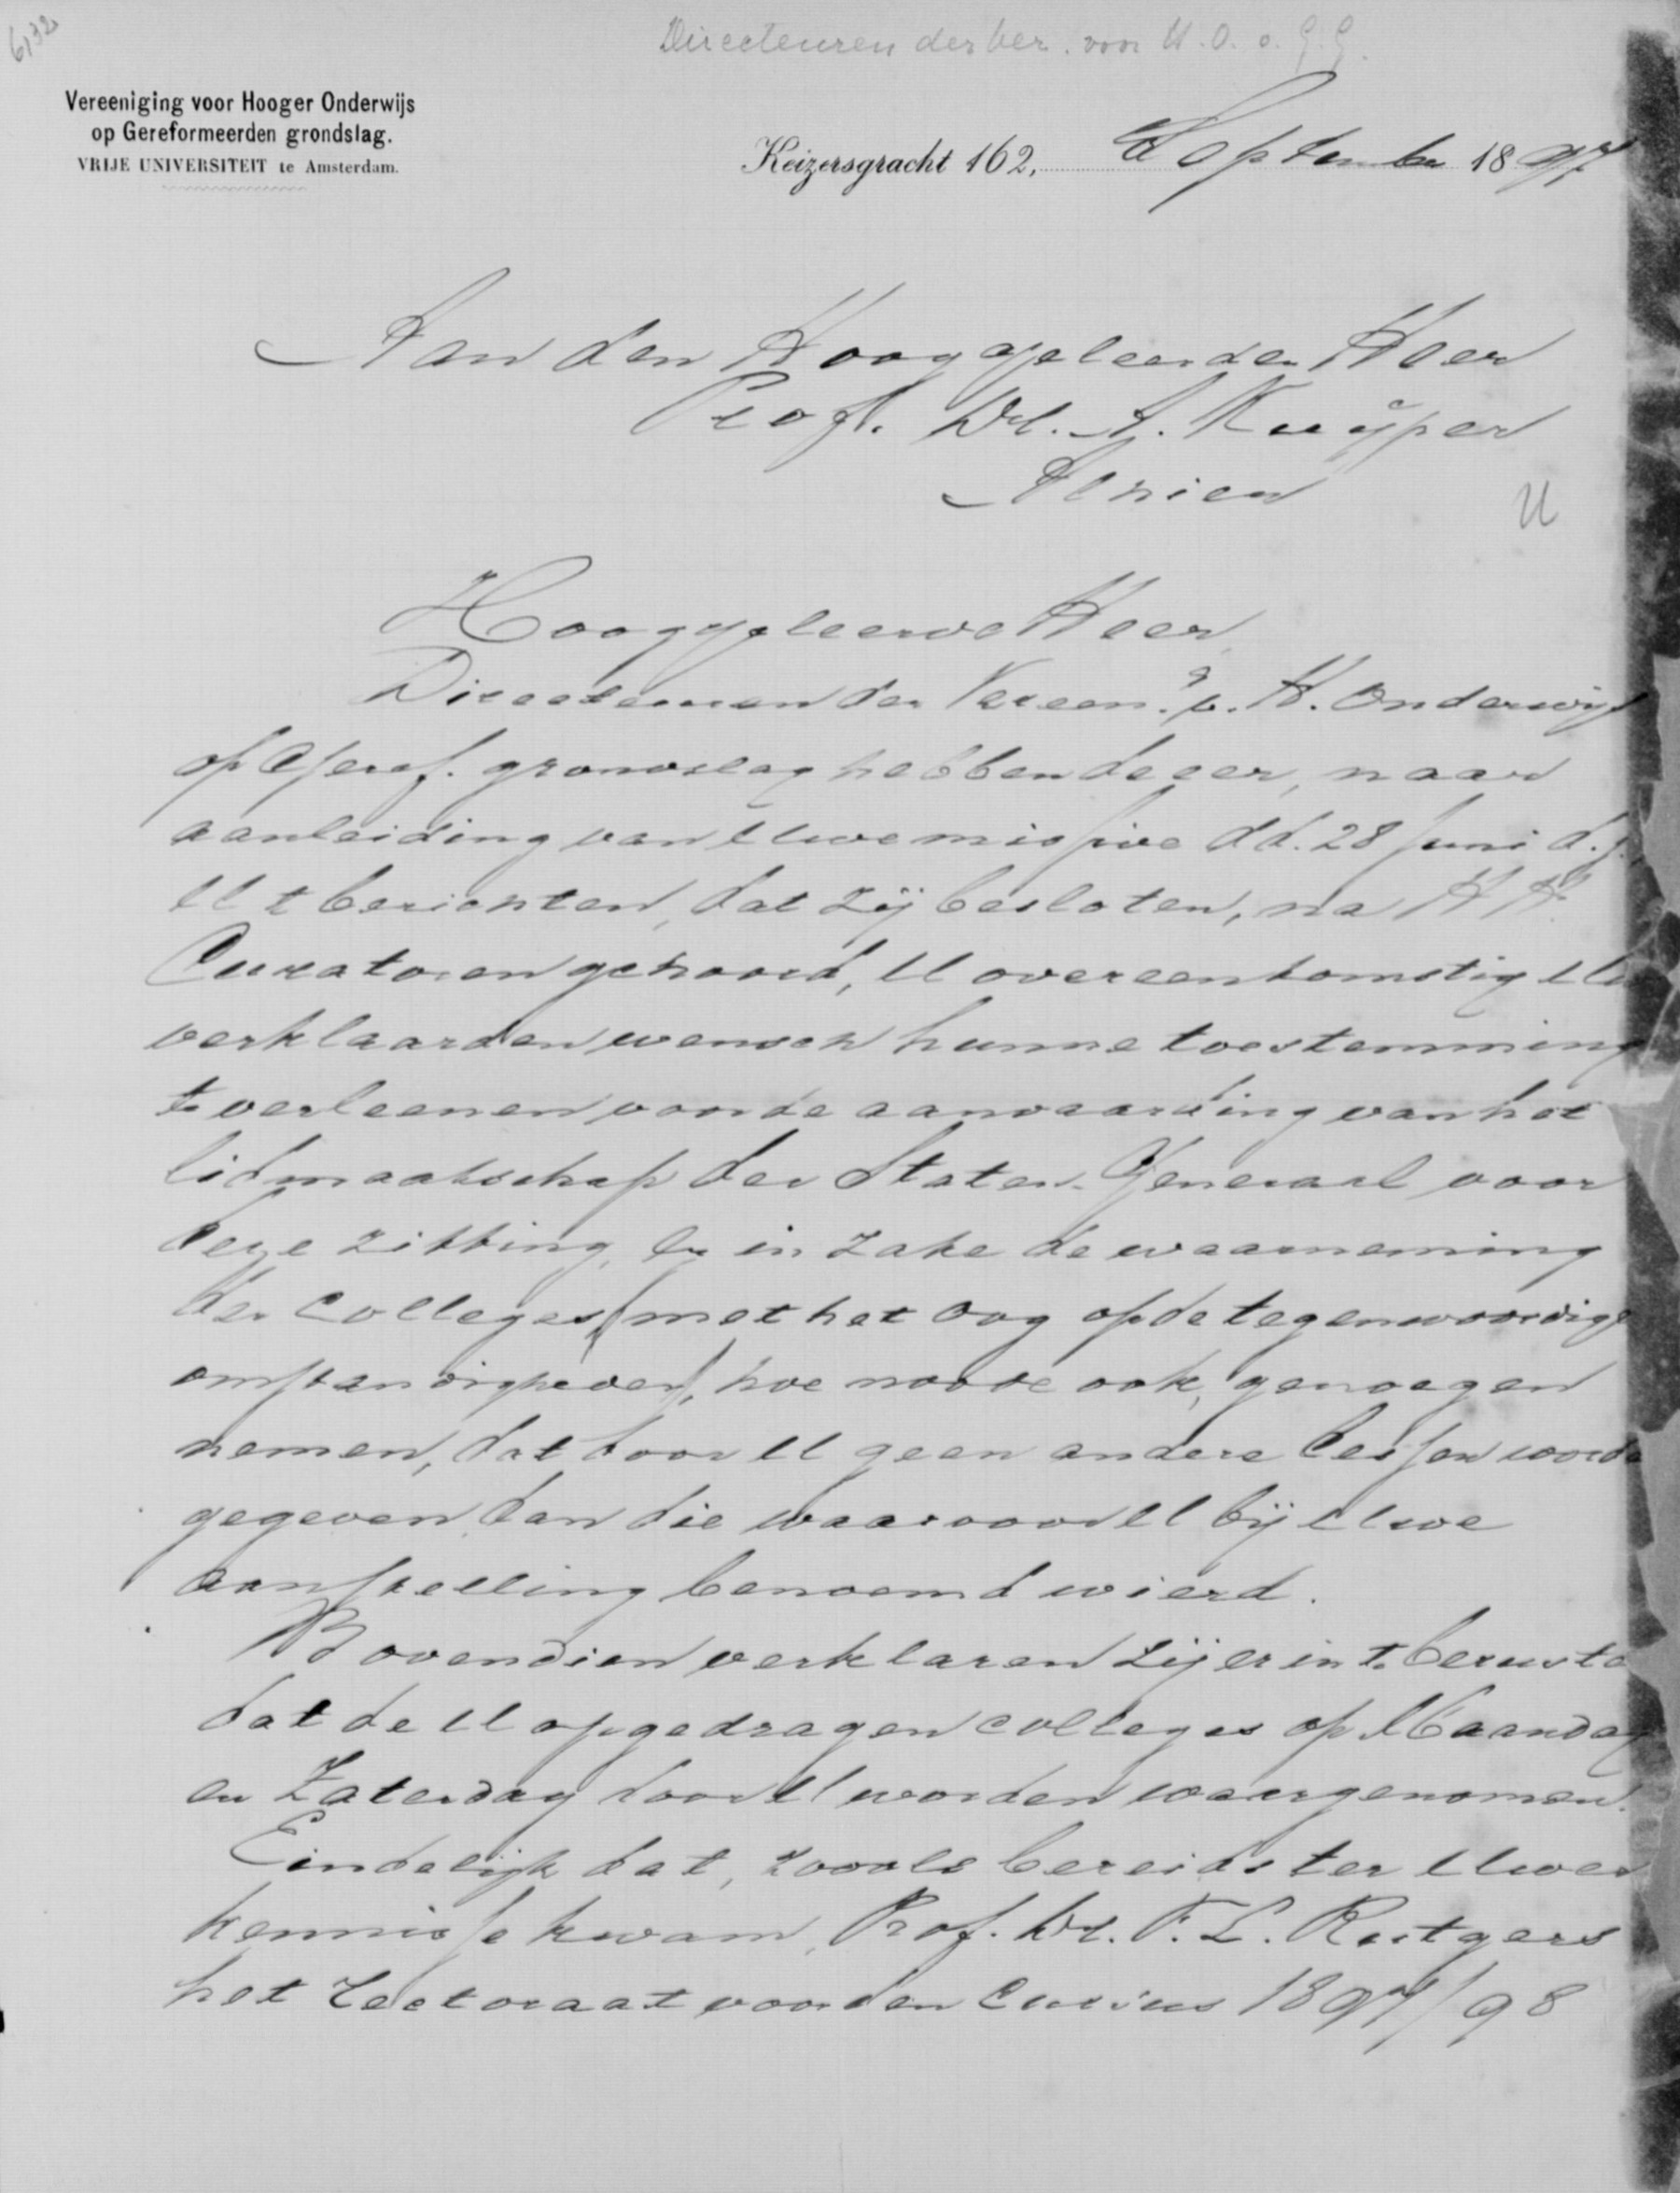 6132
Directeuren der ver. voor H.O. o. G.G.
Vereeniging voor Hooger Onderwijs
op Gereformeerden grondslag.
VRIJE UNIVERSITEIT te Amsterdam.
Keizersgracht 162, September 1897
Aan den Hooggeleerden Heer
Prof. Dr. A. Kuÿper
Alhier
U
Hooggeleerde Heer,
Directeuren der Vereen.g v. H. Onderwijs
op Geref. grondslag hebben de eer, naar
aanleiding van Uwe missive dd. 28 Juni d.j.
U te berichten, dat zij besloten, na HH.
Curatoren gehoord, U overeenkomstig Uw
verklaarden wensch hunne toestemming
te verleenen voor de aanvaarding van het
lidmaatschap der Staten-Generaal voor
deze zitting, en in zake de waarneming
der colleges (met het oog op de tegenwoordige
omstandigheden), hoe noode ook, genoegen
nemen, dat door U geen andere lessen worde
gegeven dan die waarvoor U bij Uwe
aanstelling benoemd wierd.
Bovendien verklaren zij er in te beruste
dat de U opgedragen colleges op Maandag
en Zaterdag door U worden waargenomen.
Eindelijk dat, zooals bereids ter Uwer
kennisse kwam, Prof. Dr. F. L. Rutgers
het Rectoraat voor den cursus 1897/98